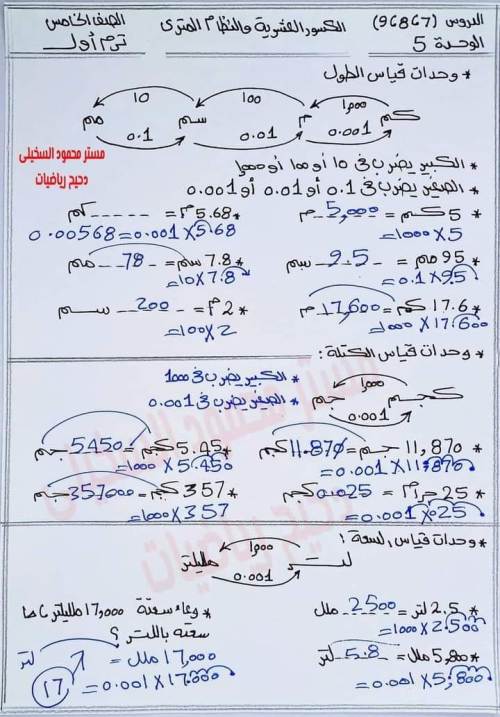 الدروس (7 و 6 و 8 و 9) الكسور العشرية والنظام المترى الصف الخامس
الوحدة 5 ترم أول
* وحدات قياس الطول
١٠ ١٠٠ ١٠٠٠
كم م سم مم
0.1 0.01 0.001
مستر محمود السخيلى
دحيح رياضيات
* الكبير يضرب فى ١٠ أو ١٠٠ أو ١٠٠٠
* الصغير يضرب فى 0.1 أو 0.01 أو 0.001
* 5 كم = 5,000 م
= 5 × 1000
* 5.68 م = ----- كم
5.68 × 0.001 = 0.00568
* 95 مم = 9.5 سم
= 95 × 0.1
* 7.8 سم = 78 مم
= 7.8 × 10
* 17.6 كم = 17,600 م
= 17.600 × 1000
* 2 م = 200 سم
= 2 × 100
* وحدات قياس الكتلة :
* الكبير يضرب فى 1000
* الصغير يضرب فى 0.001
كجم جم
١٠٠٠
0.001
* 11,870 جم = 11.870 كجم
= 11,870 × 0.001
* 5.45 كجم = 5450 جم
= 5.450 × 1000
* 25 جرام = 0.025 كجم
= 025 × 0.001
* 357 كجم = 357000 جم
= 357 × 1000
* وحدات قياس السعة :
لتر ملليلتر
١٠٠٠
0.001
* 2.5 لتر = 2500 ملل
= 2.500 × 1000
* 5,800 ملل = 5.8 لتر
= 5,800 × 0.001
* وعاء سعتة 17,000 ملليلتر ، ما
سعته باللتر ؟
17,000 ملل = لتر
= 17.000 × 0.001
17
مستر محمود السخيلى
دحيح رياضيات